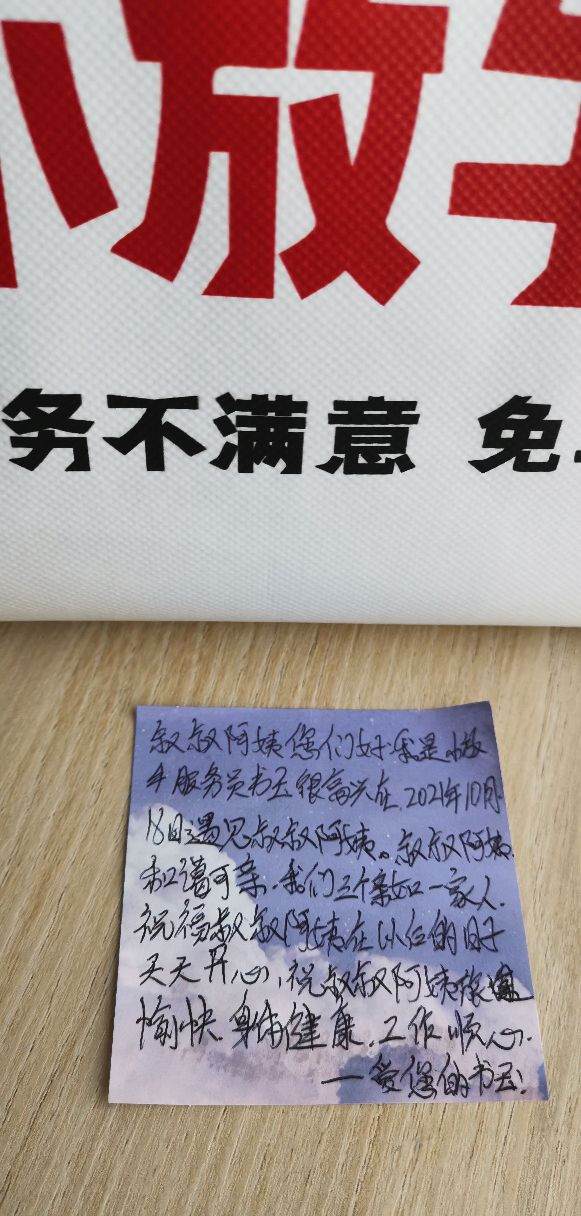 小放牛
务不满意 免
叔叔阿姨您们好:我是小放
牛服务员书玉很高兴在2021年10月
18日遇见叔叔阿姨。叔叔阿姨
和蔼可亲.我们三个亲如一家人.
祝福叔叔阿姨在以后的日子
天天开心,祝叔叔阿姨
愉快.身体健康.工作顺心.
——爱您的书玉.